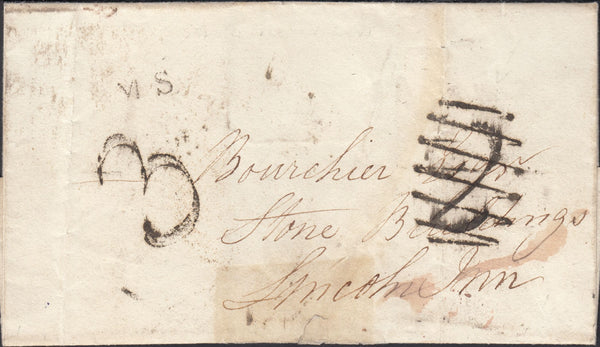 VS
3
Bourchier Esqr
2
Stone Buildings
Lincoln Inn